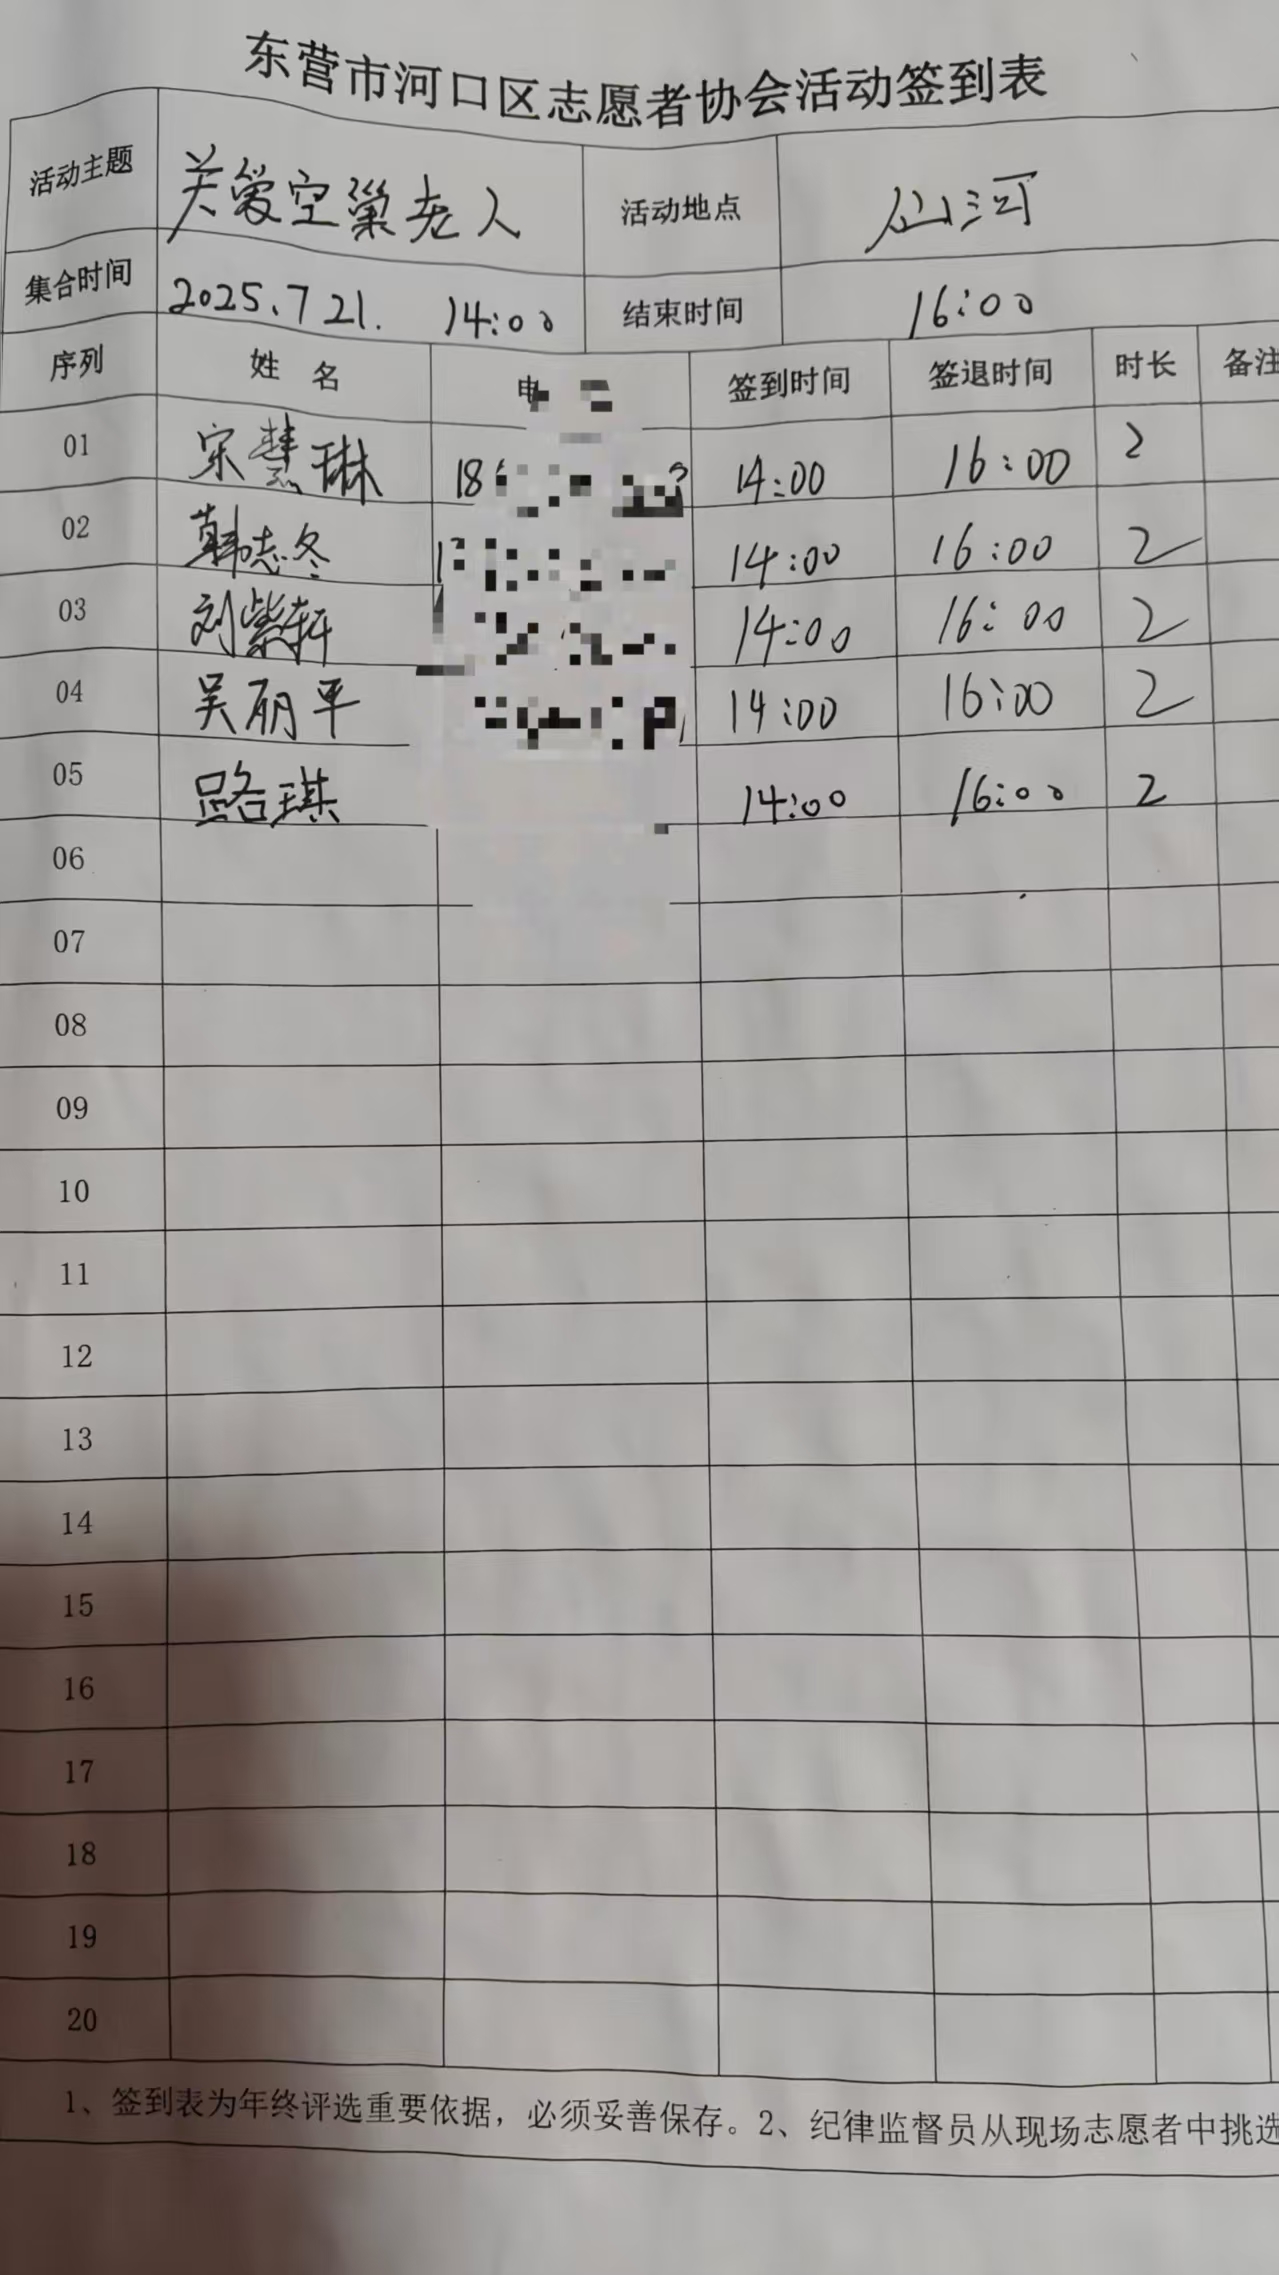 东营市河口区志愿者协会活动签到表
活动主题 关爱空巢老人 活动地点 仙河
集合时间 2025.7 21. 14:00 结束时间 16:00
序列 姓 名 电 签到时间 签退时间 时长 备注
01 宋慧琳 18 14:00 16:00 2
02 韩志冬 14:00 16:00 2
03 刘紫轩 14:00 16:00 2
04 吴丽平 14:00 16:00 2
05 路琪 14:00 16:00 2
06
07
08
09
10
11
12
13
14
15
16
17
18
19
20
1、签到表为年终评选重要依据，必须妥善保存。2、纪律监督员从现场志愿者中挑选